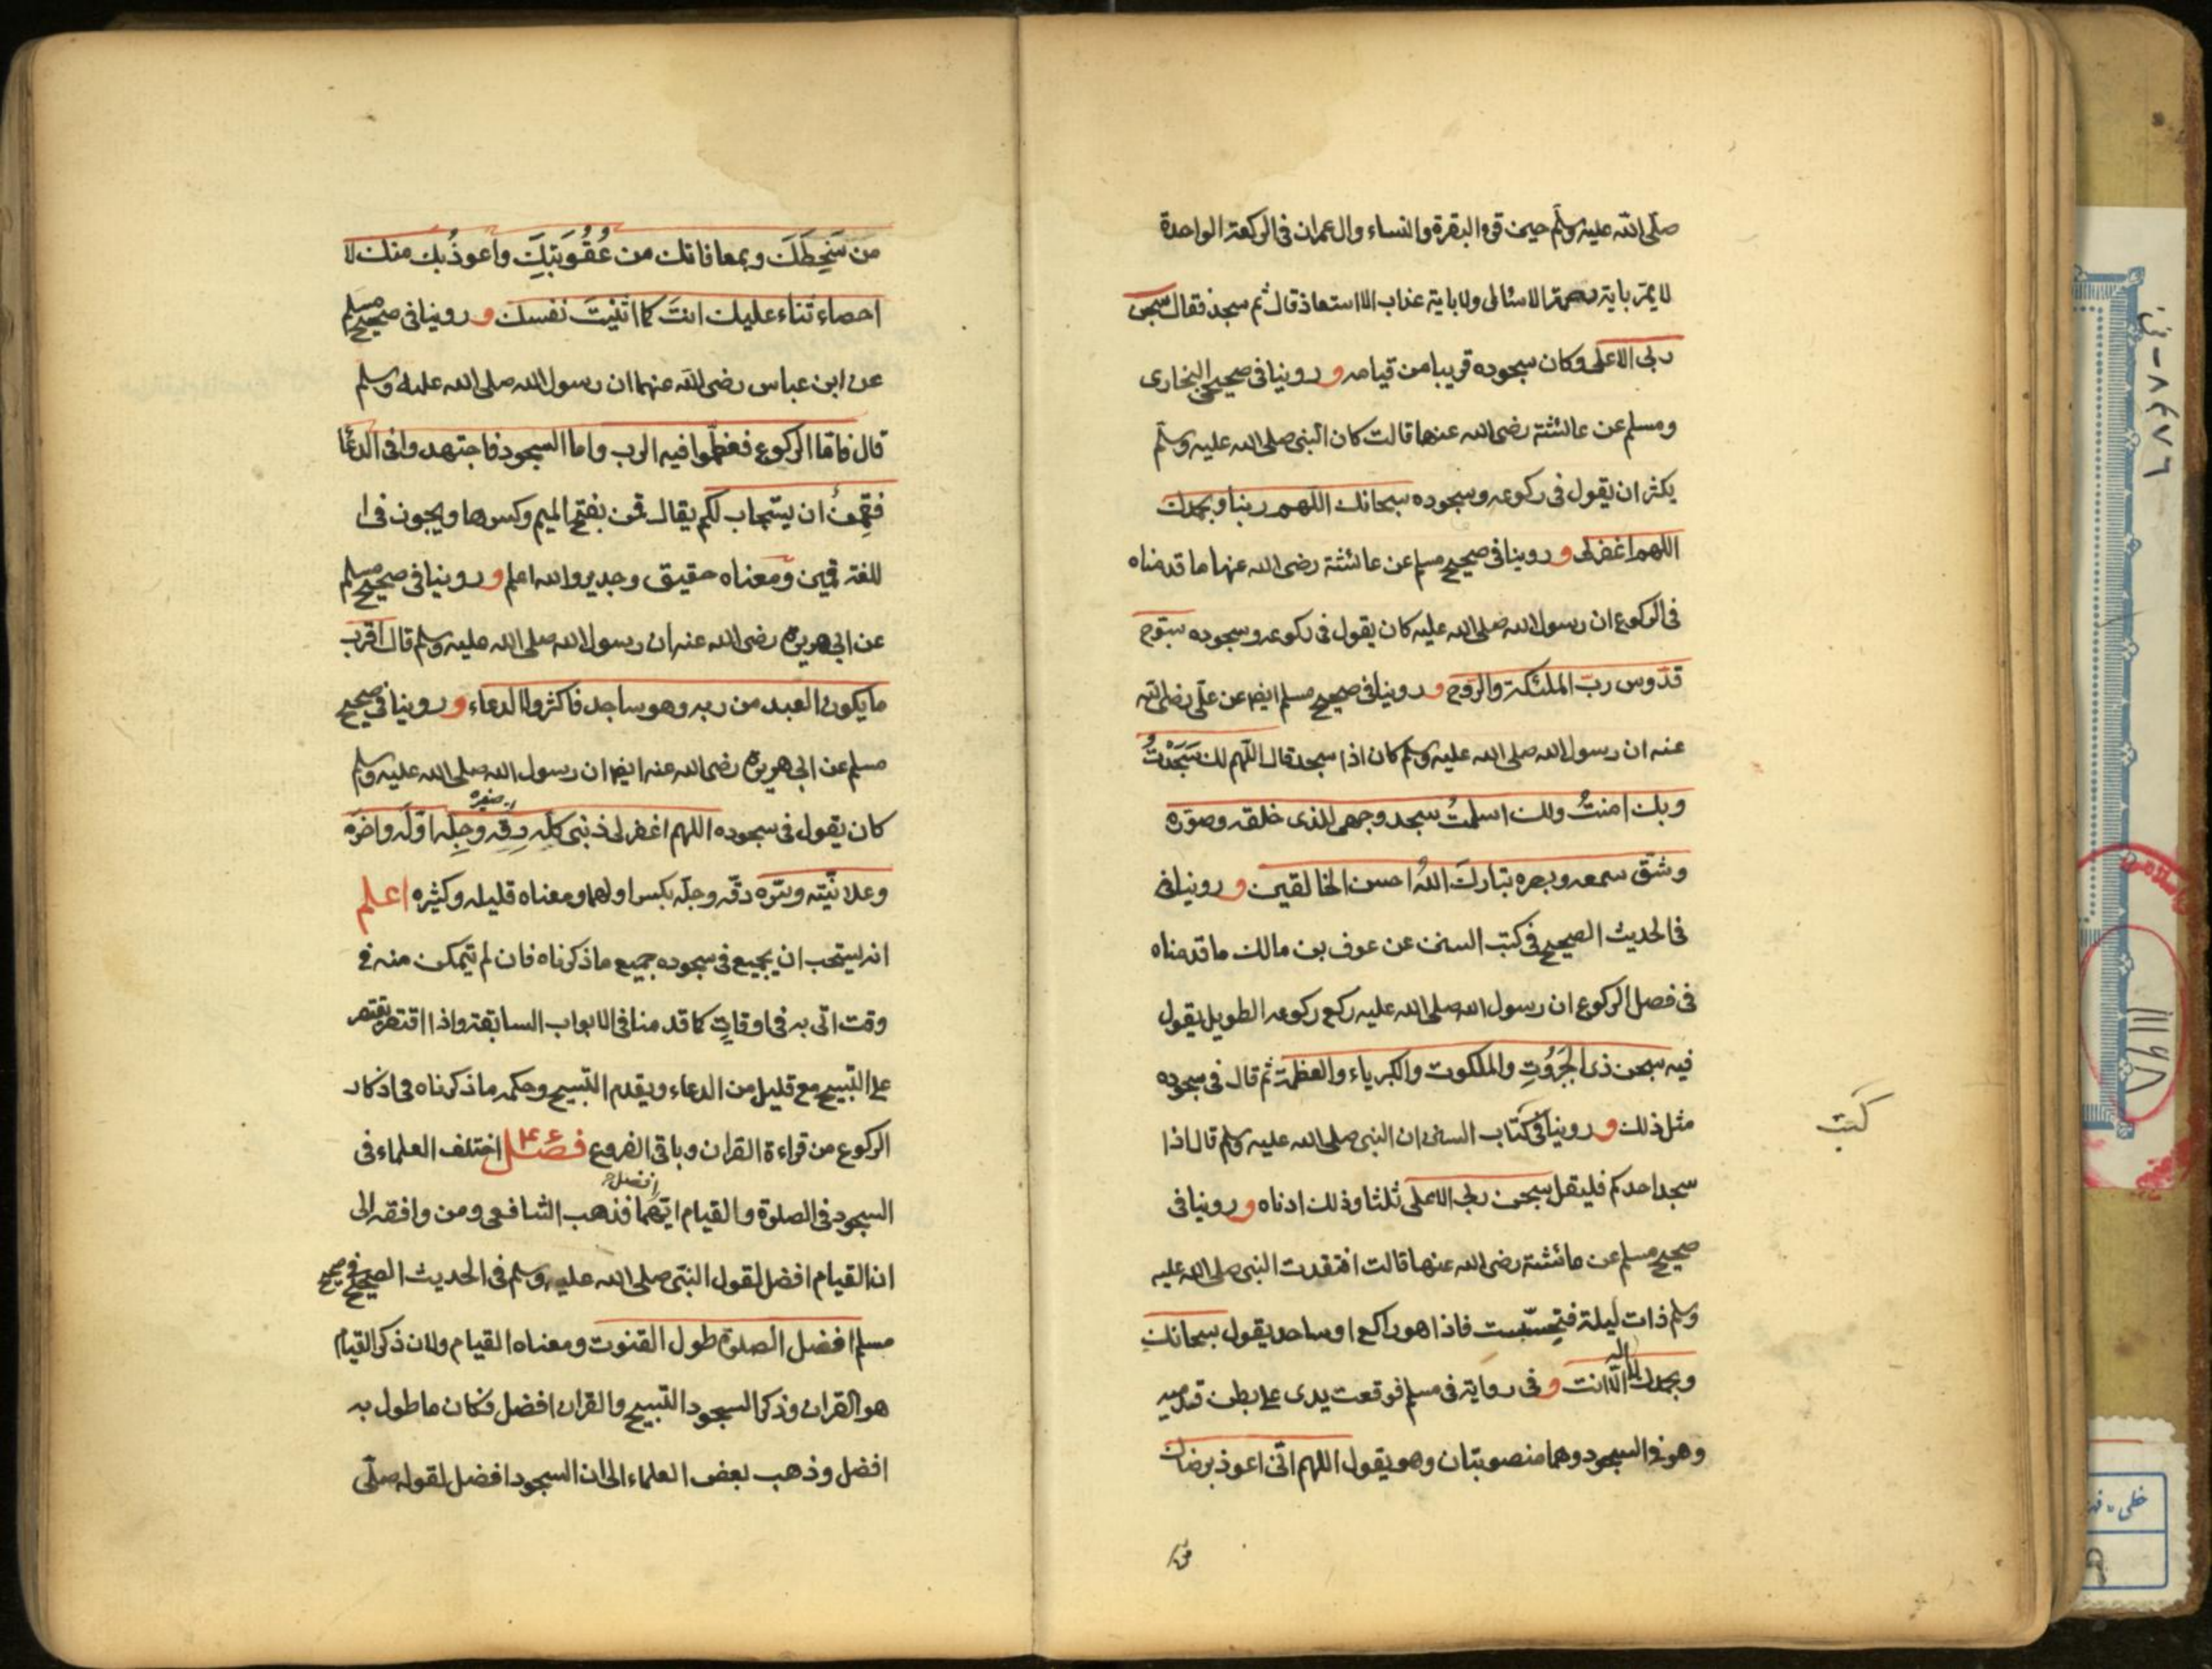 صلّى الله عليه وسلّم حين قرء البقرة والنساء وال عمران فى الركعة الواحدة
لا يمرّ باية رحمة الا سئال ولا باية عذاب الا استعاذ قال ثم سجد فقال سبحن
ربى الاعلى وكان سجوده قريبا من قيامه و روينا فى صحيح البخارى
ومسلم عن عائشة رضى الله عنها قالت كان النبى صلى الله عليه وسلّم
يكثر ان يقول فى ركوعه وسجوده سبحانك اللهم ربنا وبحمدك
اللهم اغفرلى و روينا فى صحيح مسلم عن عائشة رضى الله عنها ما قدمناه
فى الركوع ان رسول الله صلى الله عليه كان يقول فى ركوعه وسجوده سبّوح
قدّوس ربّ الملئكة والرّوح و روينا فى صحيح مسلم ايضا عن علىّ رضى الله
عنه ان رسول الله صلى الله عليه وسلم كان اذا سجد قال اللّهم لك سَجَدْتُ
وبك امنتُ ولك اسلمتُ سجد وجهى للذى خلقه وصوّره
وشقّ سمعه وبصره تباركَ اللهُ احسن الخالقين و روينا فى
فى الحديث الصحيح فى كتب السنن عن عوف بن مالك ما قدمناه
فى فصل الركوع ان رسول الله صلى الله عليه ركع ركوعه الطويل يقول
فيه سبحن ذى الجَبَرُوتِ والملكوت والكبرياء والعظمة ثم قال فى سجوده
مثل ذلك و روينا فى كتاب السنن ان النبى صلى الله عليه وسلم قال اذا
كتب
سجد احدكم فليقل سبحن ربى الاعلى ثلثا وذلك ادناه و روينا فى
صحيح مسلم عن عائشة رضى الله عنها قالت افتقدت النبى صلى الله عليه
وسلم ذات ليلة فتحسّست فاذا هو راكع او ساجد يقول سبحانك
وبحمدك لا اله الّا انت و فى رواية فى مسلم فوقعت يدى على بطن قدميه
وهو فى السجود وهما منصوبتان وهو يقول اللهم انّى اعوذ برضاك
من
من سَخِطَكَ وبمعافاتك من عُقُوبَتِكَ واعوذُ بك منك لا
احصاء ثناء عليك انتَ كما اثنيتَ نفسك و روينا فى صحيح مسلم
عن ابن عباس رضى الله عنهما ان رسول الله صلى الله عليه وسلم
قال فامّا الركوع فعظّموا فيه الرب واما السجود فاجتهدوا فى الدعُا
فقَمِنُ ان يستجاب لكم يقال قمن بفتح الميم وكسرها ويجوز فى ا
للغة قمين ومعناه حقيق وجدير والله اعلم و روينا فى صحيح مسلم
عن ابى هريرة رضى الله عنه ان رسول الله صلى الله عليه وسلم قال اقرب
ما يكون العبد من ربه وهو ساجد فاكثروا الدعاء و روينا فى صحيح
مسلم عن ابى هريرة رضى الله عنه ايضا ان رسول الله صلى الله عليه وسلم
كان يقول فى سجوده اللهم اغفر لى ذنبى كلّه دِقّه وجِلّه اوّله واخره
وعلانيّته وسرّه دقّه وجلّه بكسر اولهما ومعناه قليله وكثيره اعلم
انه يستحب ان يجمع فى سجوده جميع ما ذكرناه فان لم يتمكن منه فى
وقت اتى به فى اوقاتٍ كما قدمنا فى الابواب السابقة واذا اقتصر يقتصر
على التّسبيح مع قليل من الدعاء ويقدم التّسبيح وحكمه ما ذكرناه فى اذكار
الركوع من قراءة القران وباقى الفروع فصل اختلف العلماء فى
السجود فى الصلوة والقيام ايّهما افضل فذهب الشافعى ومن وافقه الى
ان القيام افضل لقول النبّى صلى الله عليه وسلم فى الحديث الصحيح فى صحيح
مسلم افضل الصلوة طول القنوت ومعناه القيام ولان ذكر القيام
هو القران وذكر السجود التّسبيح والقران افضل فكان ما طول به
افضل وذهب بعض العلماء الى ان السجود افضل لقوله صلّى